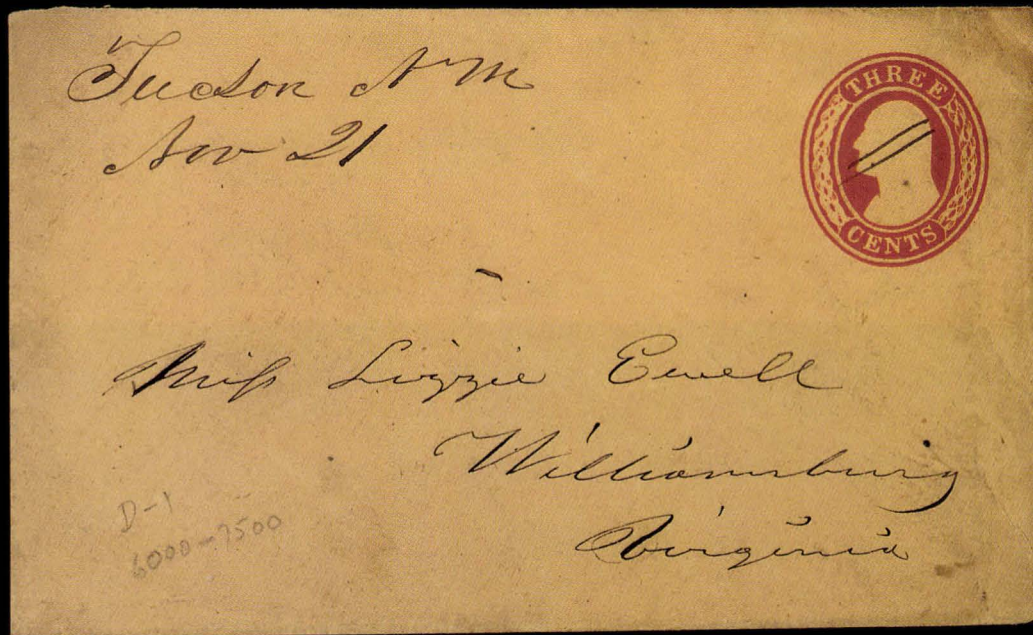 Tucson N M
Nov 21
THREE
CENTS
Miss Lizzie Ewell
Williamsburg
Virginia
D-1
6000-7500